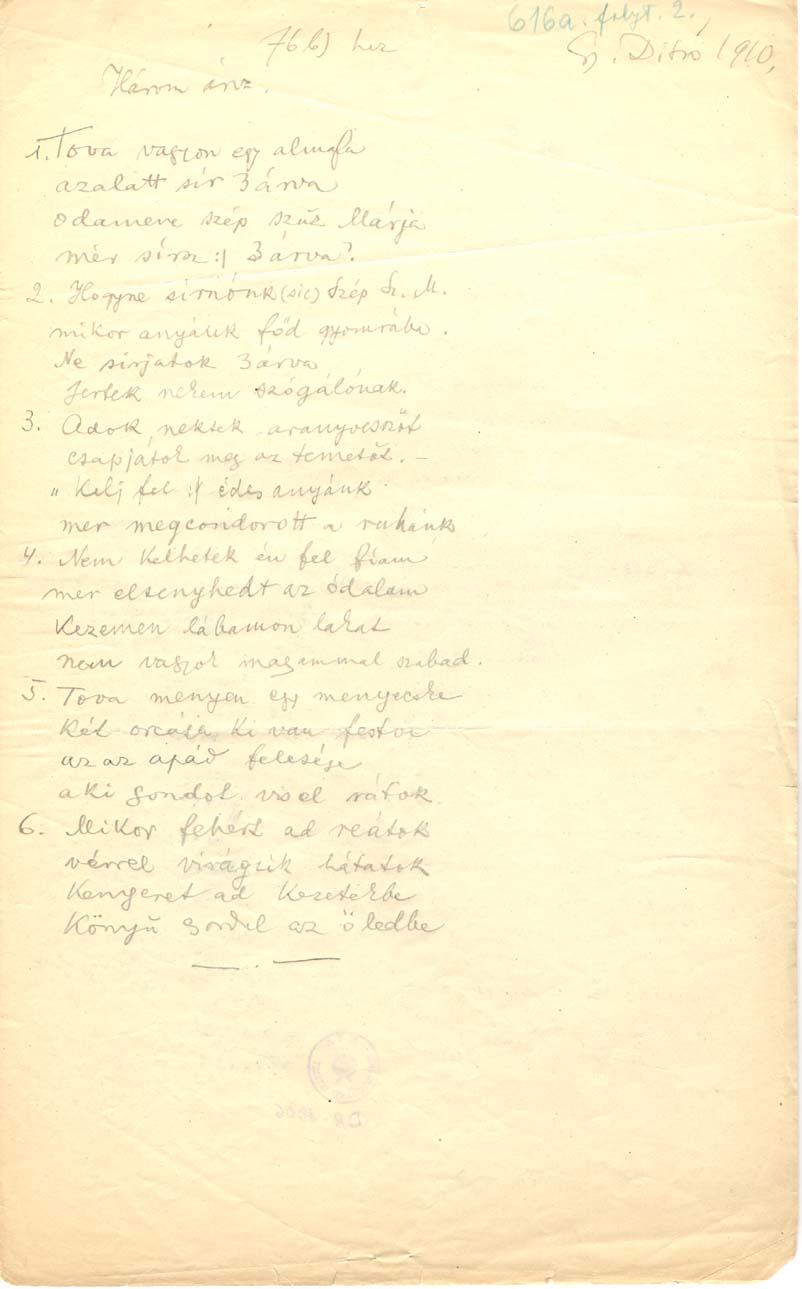 616a. folyt. 2.,
76 b) hez
Gy. Ditró 1910,
Három árv.
1. Tova vagyon egy almafa
azalatt sír 3 árva
odameve szép szűz Márja
mér sírsz :| 3 árva?
2. Hogyne sirnónk (sic) Szép Sz. M.
mikor anyánk főd gyomrába.
Ne sirjatok 3 árva
Jertek nekem szógálónak.
3. Adok nektek aranyvesszőt
csapjátok meg az temetőt. –
„ Kelj fel :| édes anyánk
mer megcondorott a ruhánk
4. Nem kelhetek én fel fiam
mer elsenyhedt az ódalam
Kezemen lábamon lakat
nem vagyok magammal szabad.
5. Tova menyen egy menyecske
Két orcája ki van festve
az az apád felesége
aki gondot visel rátok
6. Mikor fehért ad reátok
vérrel virágzik hátatok
Kenyeret ad kezetekbe
Könyű gordul az öledbe